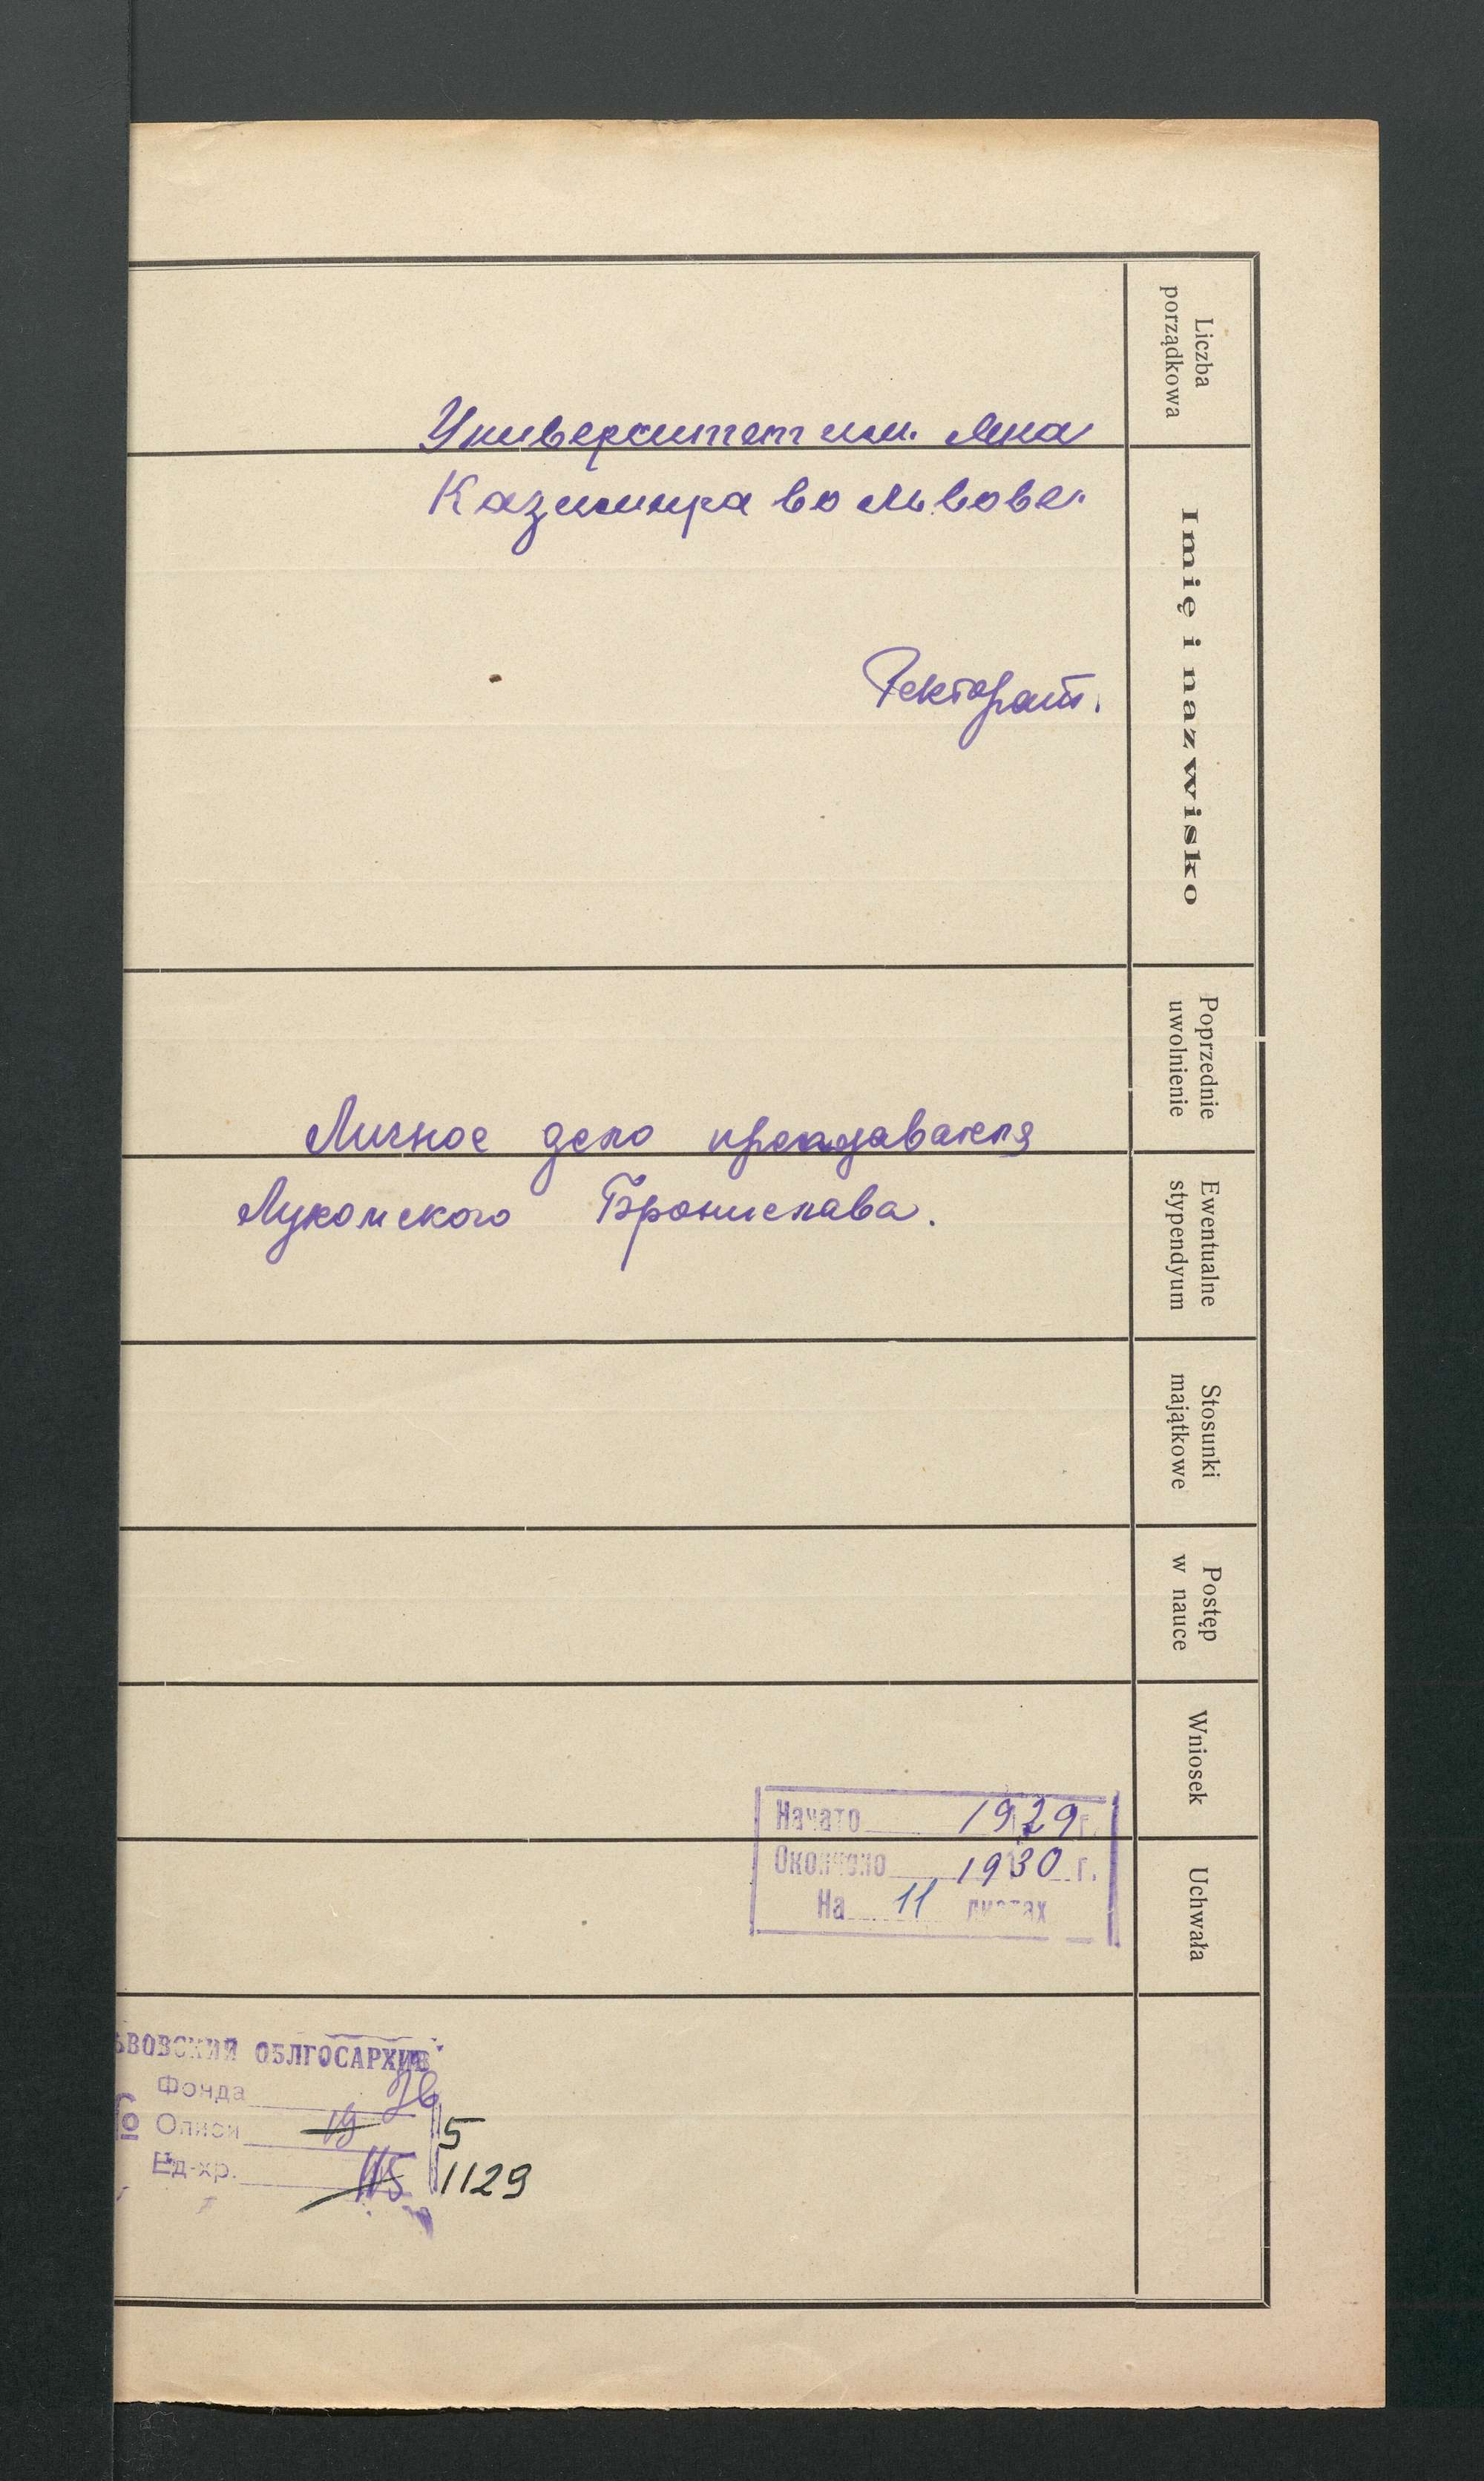 Liczba
porządkowa
Imię i nazwisko
Poprzednie
uwolnienie
Ewentualne
stypendyum
Stosunki
majątkowe
Postęp
w nauce
Wniosek
Uchwała
Университет им. Яна
Казимира во Львове.
Ректорат.
Личное дело преподавателя
Лукомского Бронислава.
Начато 1929 г.
Окончено 1930 г.
На 11 листах
ЬВОВСКИЙ ОБЛГОСАРХИВ
Фонда 26
№ Описи 19 5
Ед-хр. 115 1129